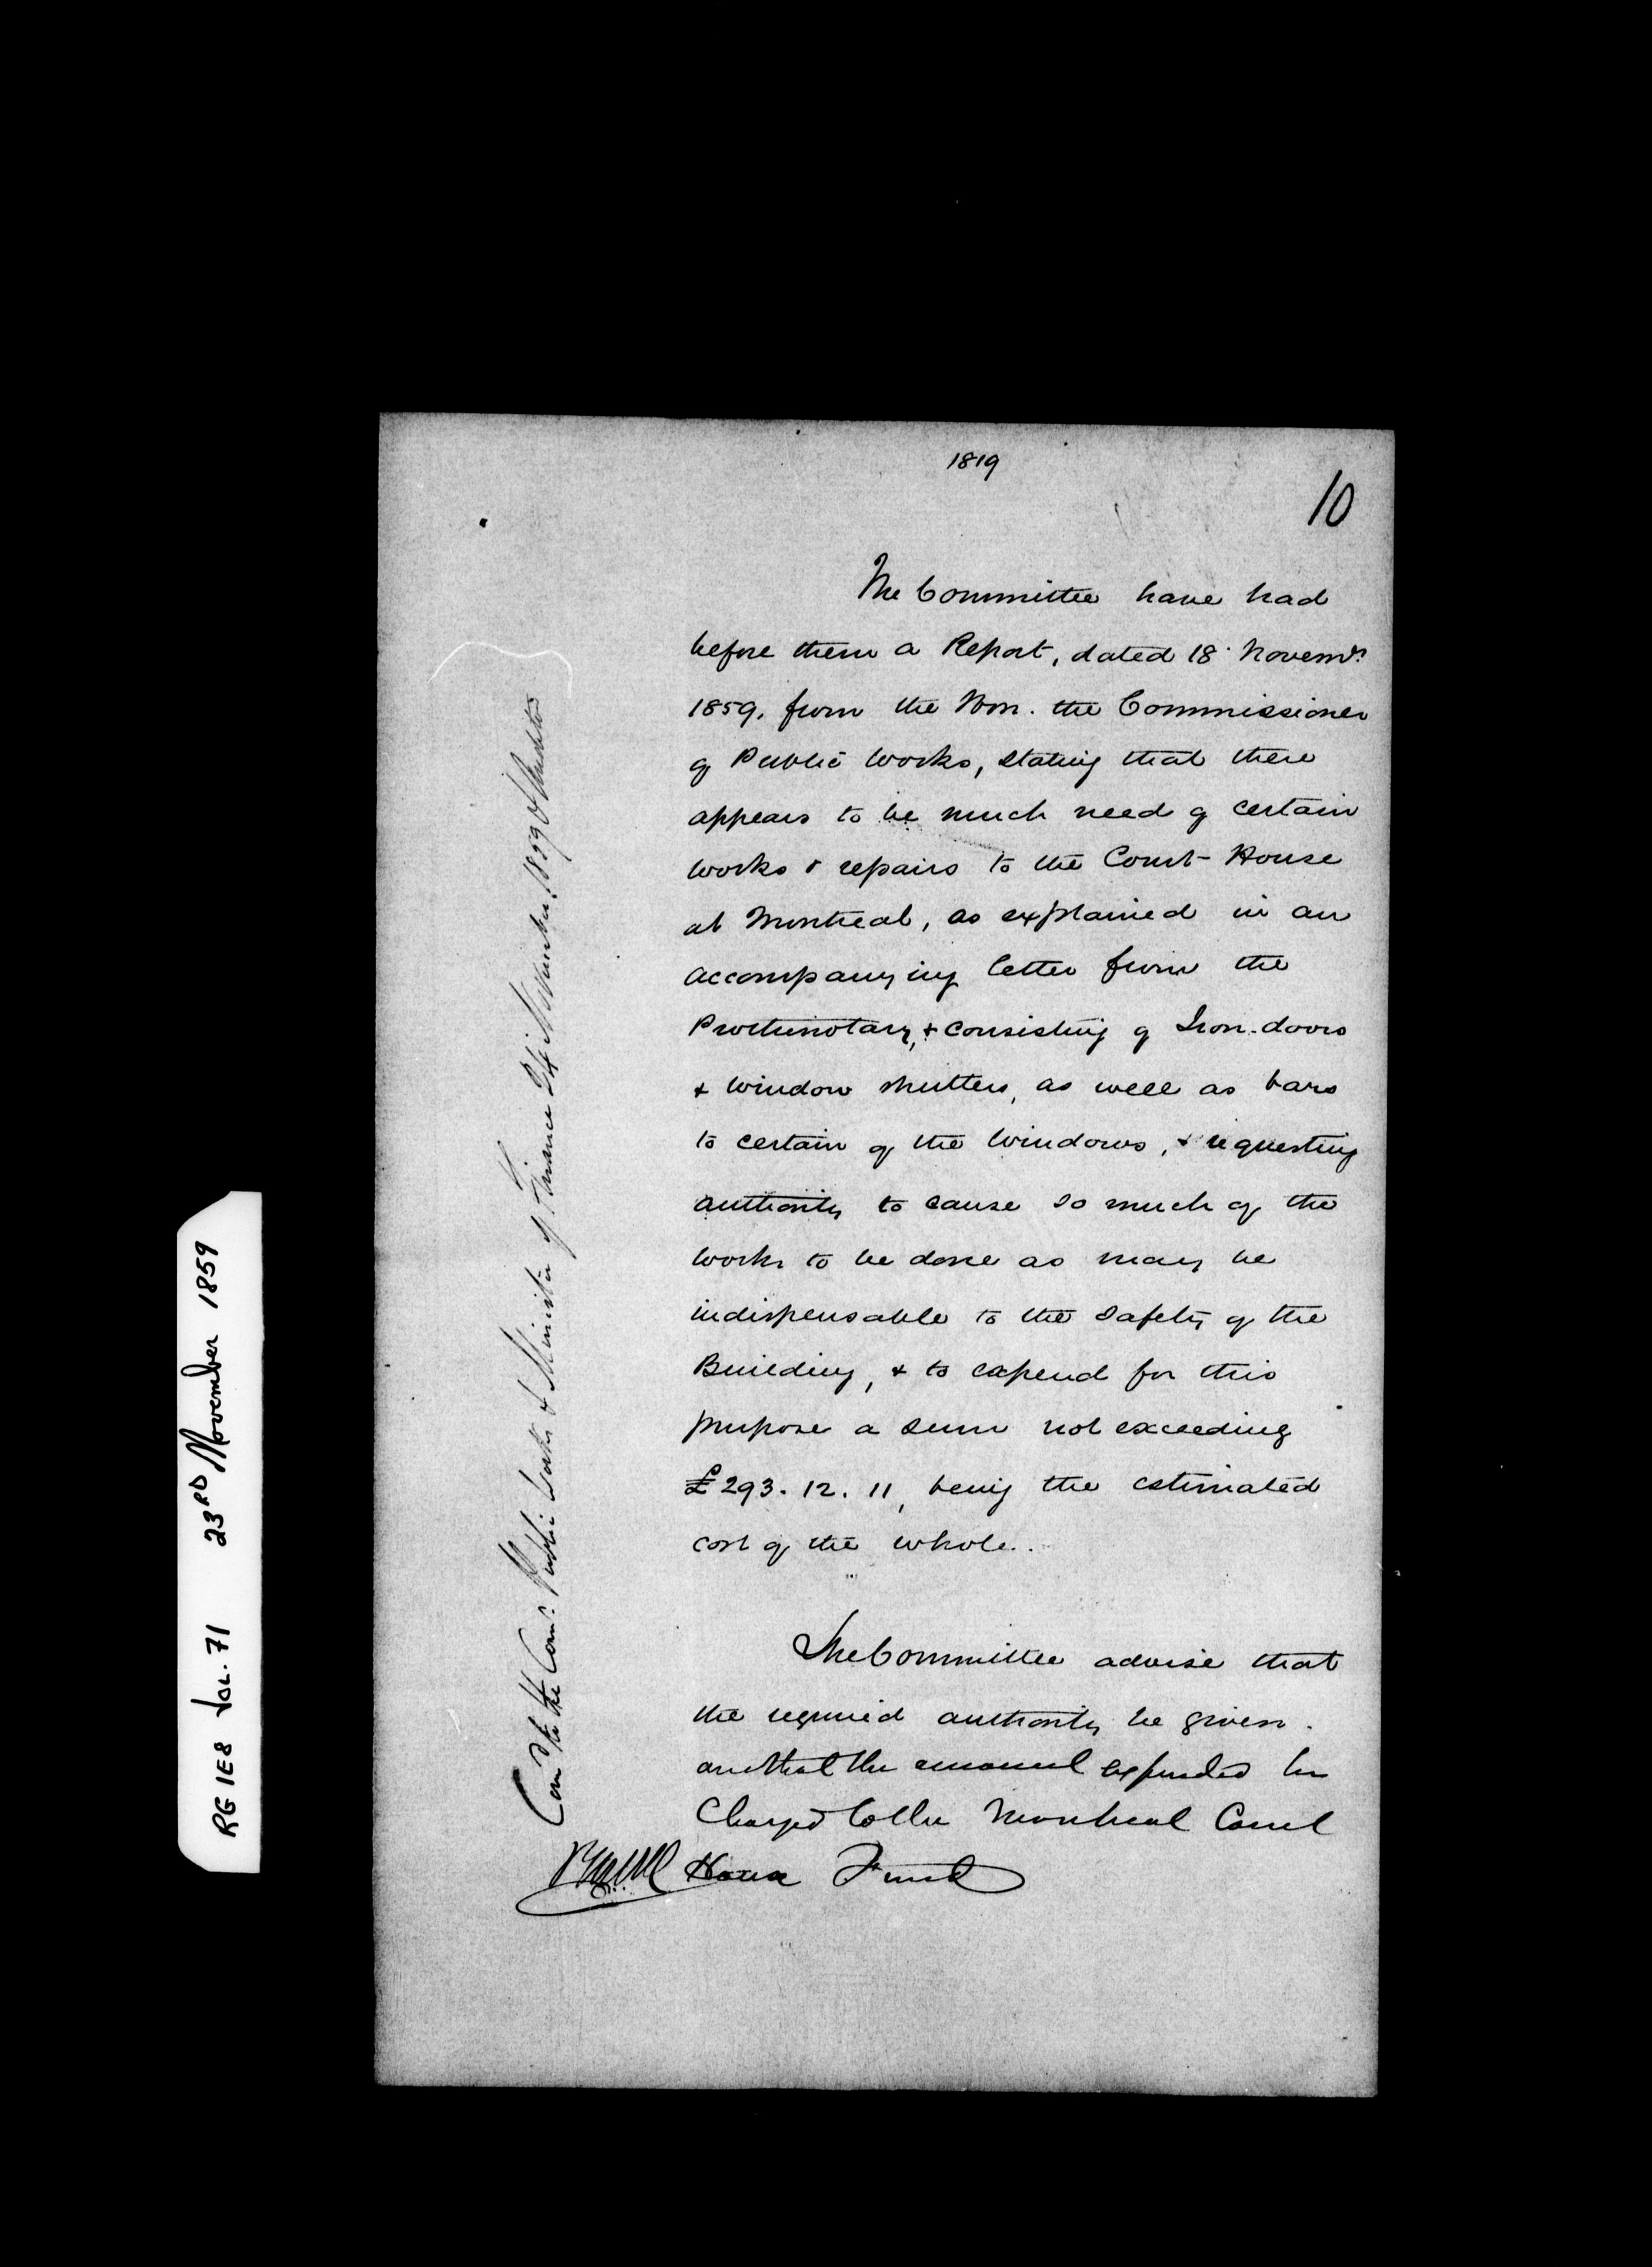 1819
10
The Committee have had
before them a Report, dated 18 Novemr.
1859. from the Hon. the Commissioner
of Public Works, stating that there
appears to be much need of certain
works & repairs to the Court-House
at Montreal, as explained in an
accompanying letter from the
Prothonotary, & consisting of Iron-doors
& window shutters, as well as bars
to certain of the windows, & requesting
authority to cause so much of the
works to be done as may be
indispensable to the safety of the
Building, & to expend for this
purpose a sum not exceeding
£293. 12. 11, being the estimated
cost of the whole.
The Committee advise that
the required authority be given.
and that the amount expended be
Charged to the Montreal Court
House Fund
Comd. to the Comr. Public Works & Minister of Finance 24 November 1859 & Auditor
RG 1E8 Vol. 71 23RD November 1859